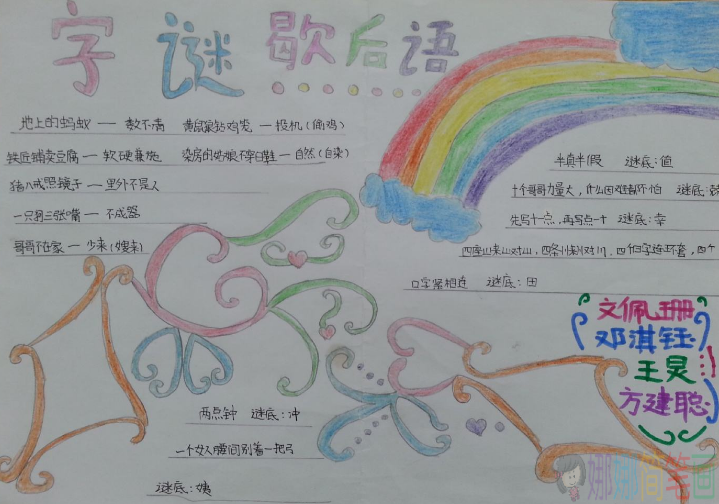 字谜歇后语
地上的蚂蚁一数不清 黄鼠狼钻鸡笼一投机(偷鸡)
铁匠铺卖豆腐一软硬兼施 染房的姑娘不穿白鞋一自然(自染)
猪八戒照镜子一里外不是人
一只狗三张嘴一不成器
哥哥不在家一少来(嫂来)
半真半假 谜底:值
十个哥哥力量大,什么困难都不怕 谜底:兢
先写十一点,再写点一十 谜底:幸
四座山来山对山,四条川来川对川,四个口字连环套,四个
口字紧相连 谜底:田
文佩珊
邓淇钰
王灵
方建聪
两点钟 谜底:冲
一个女人腰间别着一把弓
谜底:姨
娜娜简笔画